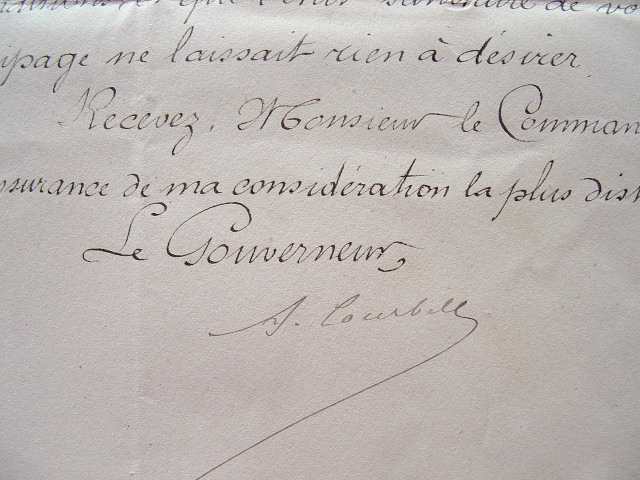 que l'état sanitaire de vo
ipage ne laissait rien à désirer.
Recevez, Monsieur le Comman
ssurance de ma considération la plus dist
Le Gouverneur,
A. Courbet